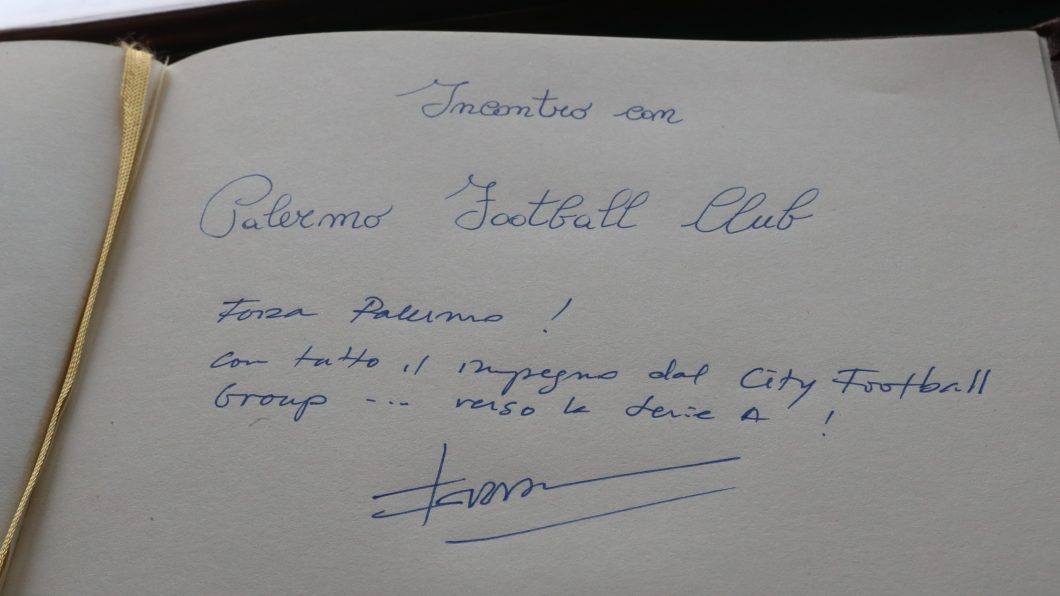 Incontro con
Palermo Football Club
Forza Palermo !
con tutto il impegno dal City Football
Group --- verso la Serie A !